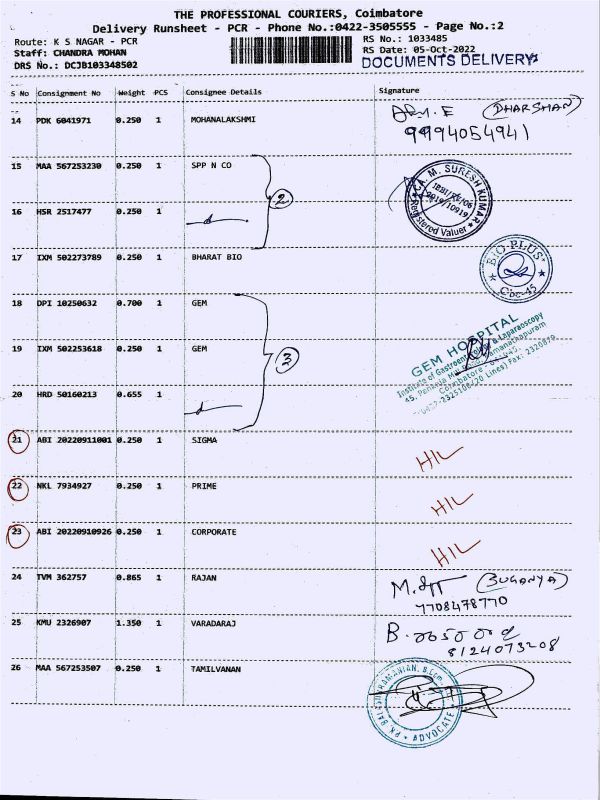 THE PROFESSIONAL COURIERS, Coimbatore
Delivery Runsheet - PCR - Phone No.:0422-3505555 - Page No.:2
Route: K S NAGAR - PCR
RS No.: 1033485
Staff: CHANDRA MOHAN
RS Date: 05-Oct-2022
DRS No.: DCJB103348502
DOCUMENTS DELIVERY
S No Consignment No Weight PCS Consignee Details Signature
14 PDK 6041971 0.250 1 MOHANALAKSHMI
(DHARSHAN)
9994054941
15 MAA 567253230 0.250 1 SPP N CO
CA. M. SURESH KUMAR
IBBI/RV/06
2019/10919
Registered Valuer
2
16 HSR 2517477 0.250 1
17 IXM 502273789 0.250 1 BHARAT BIO
BIO-PLUS
Cbe-45
18 DPI 10250632 0.700 1 GEM
3
19 IXM 502253618 0.250 1 GEM
GEM HOSPITAL
Institute of Gastroenterology & Laparoscopy
45, Ramanathapuram
Coimbatore
20 HRD 50160213 0.655 1
21 ABI 20220911001 0.250 1 SIGMA
HIL
22 NKL 7934927 0.250 1 PRIME
HIL
23 ABI 20220910926 0.250 1 CORPORATE
HIL
24 TVM 362757 0.865 1 RAJAN
(SUGANYA)
7708478770
25 KMU 2326907 1.350 1 VARADARAJ
B.
8124073208
26 MAA 567253507 0.250 1 TAMILVANAN
ADVOCATE